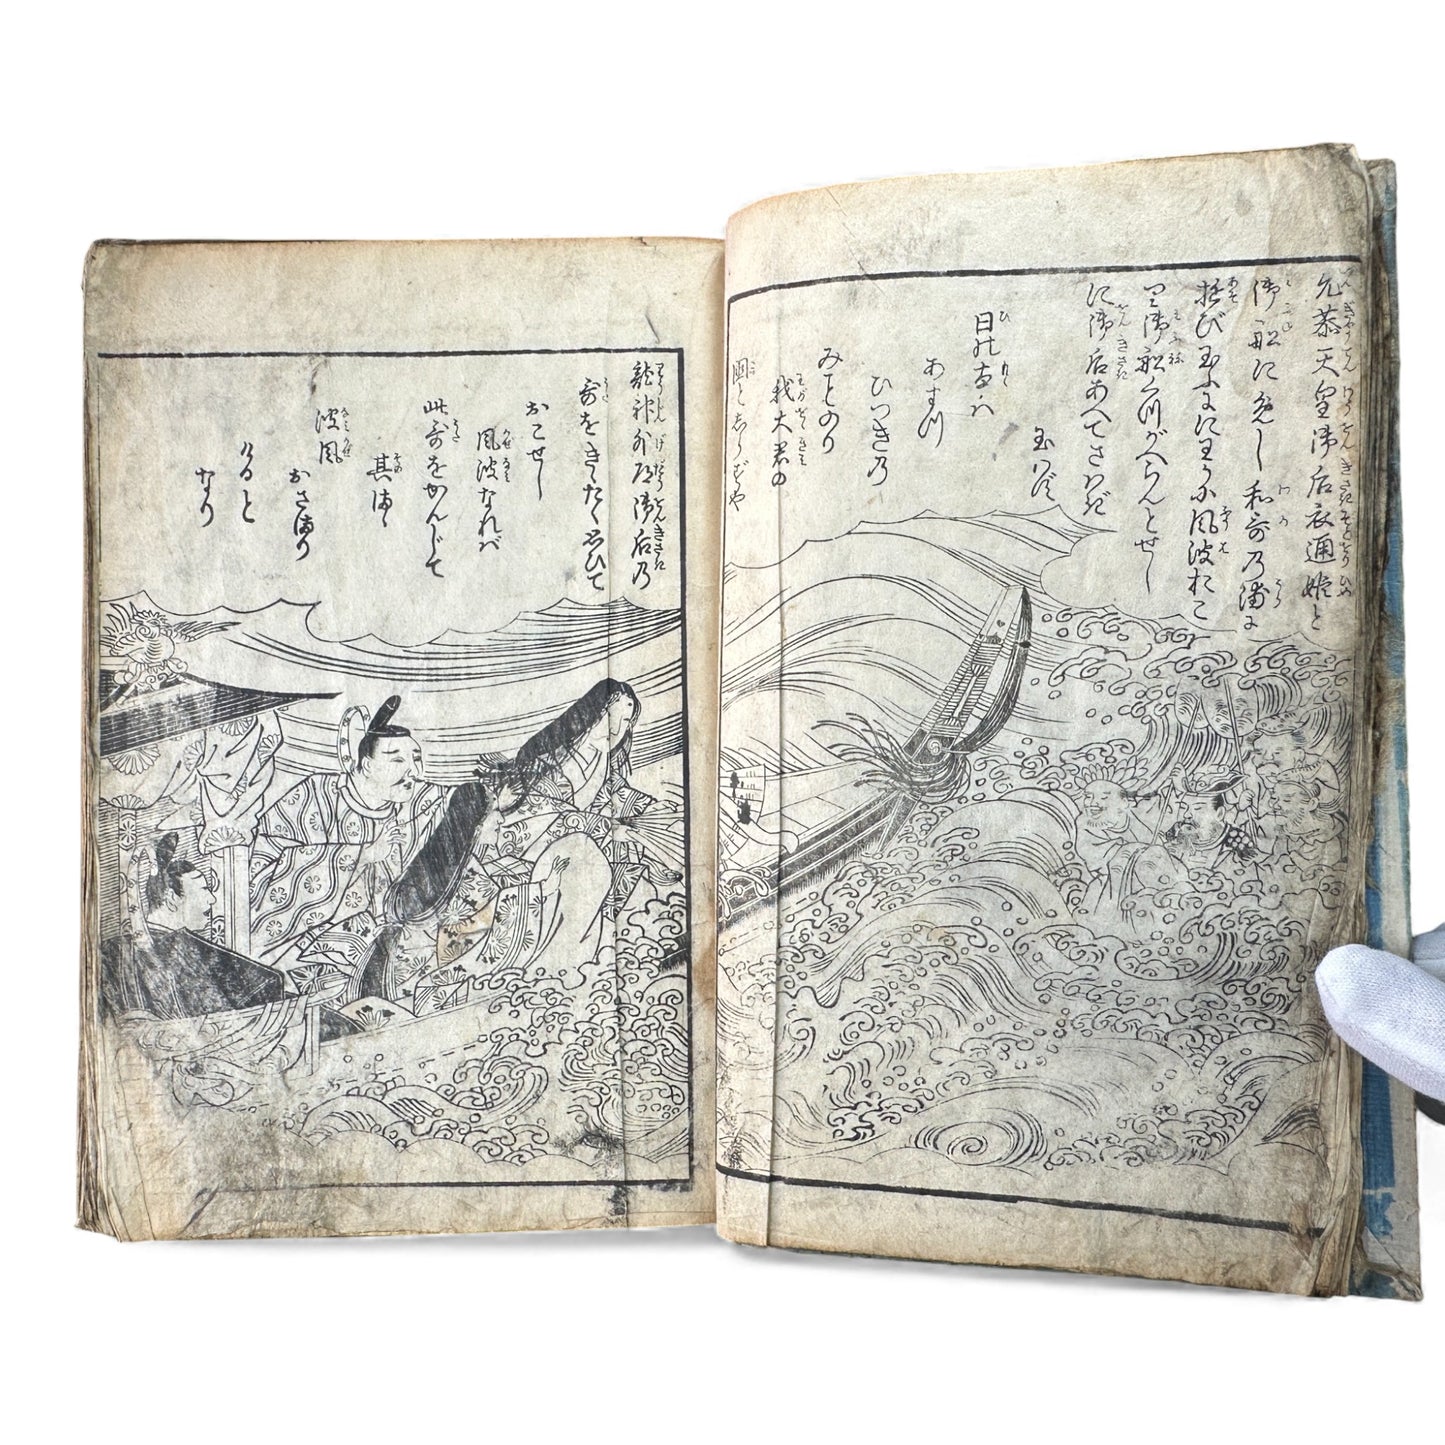 允恭天皇御后衣通姫と
御船にめし和哥乃浦に
遊び玉ふににわかに風波おこ
り御船くつがへらんとせし
に御后あへてさわが
玉はず
日のもとは
あす川
ひつきの
みことのり
我大君の
国としらずや
龍神外道御后乃
哥をきゝたく思ひて
おこせし
風波なれば
此哥をかんじて
其まゝ
波風
おさまり
けると
なり